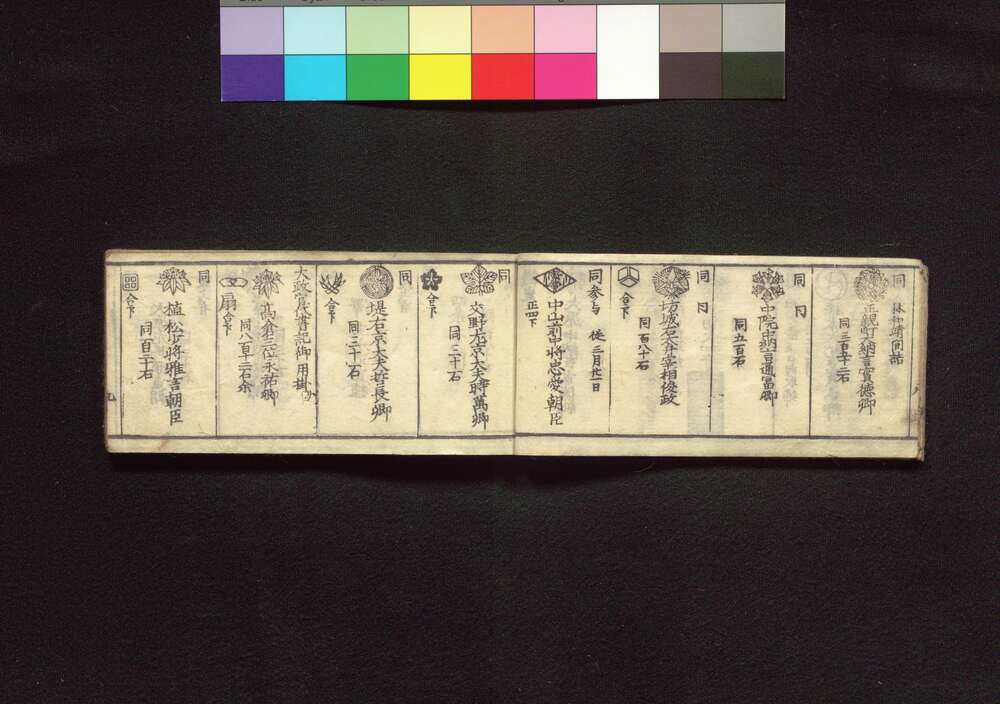 同
正親町大納言實德卿
同三百五十二石
同 同
中院中納言通冨卿
同五百石
同 同
坊城大弁宰相俊政
同百八十石
同参与 従三月廿一日
中山前中将忠愛朝臣
正四下
同
交野左京大夫時萬卿
同三十石
同
堤右京大夫哲長卿
同三十石
大政官代書記御用掛
高倉三位永祜卿
同八百十二石余
扇
同
植松少将雅言朝臣
同百三十石